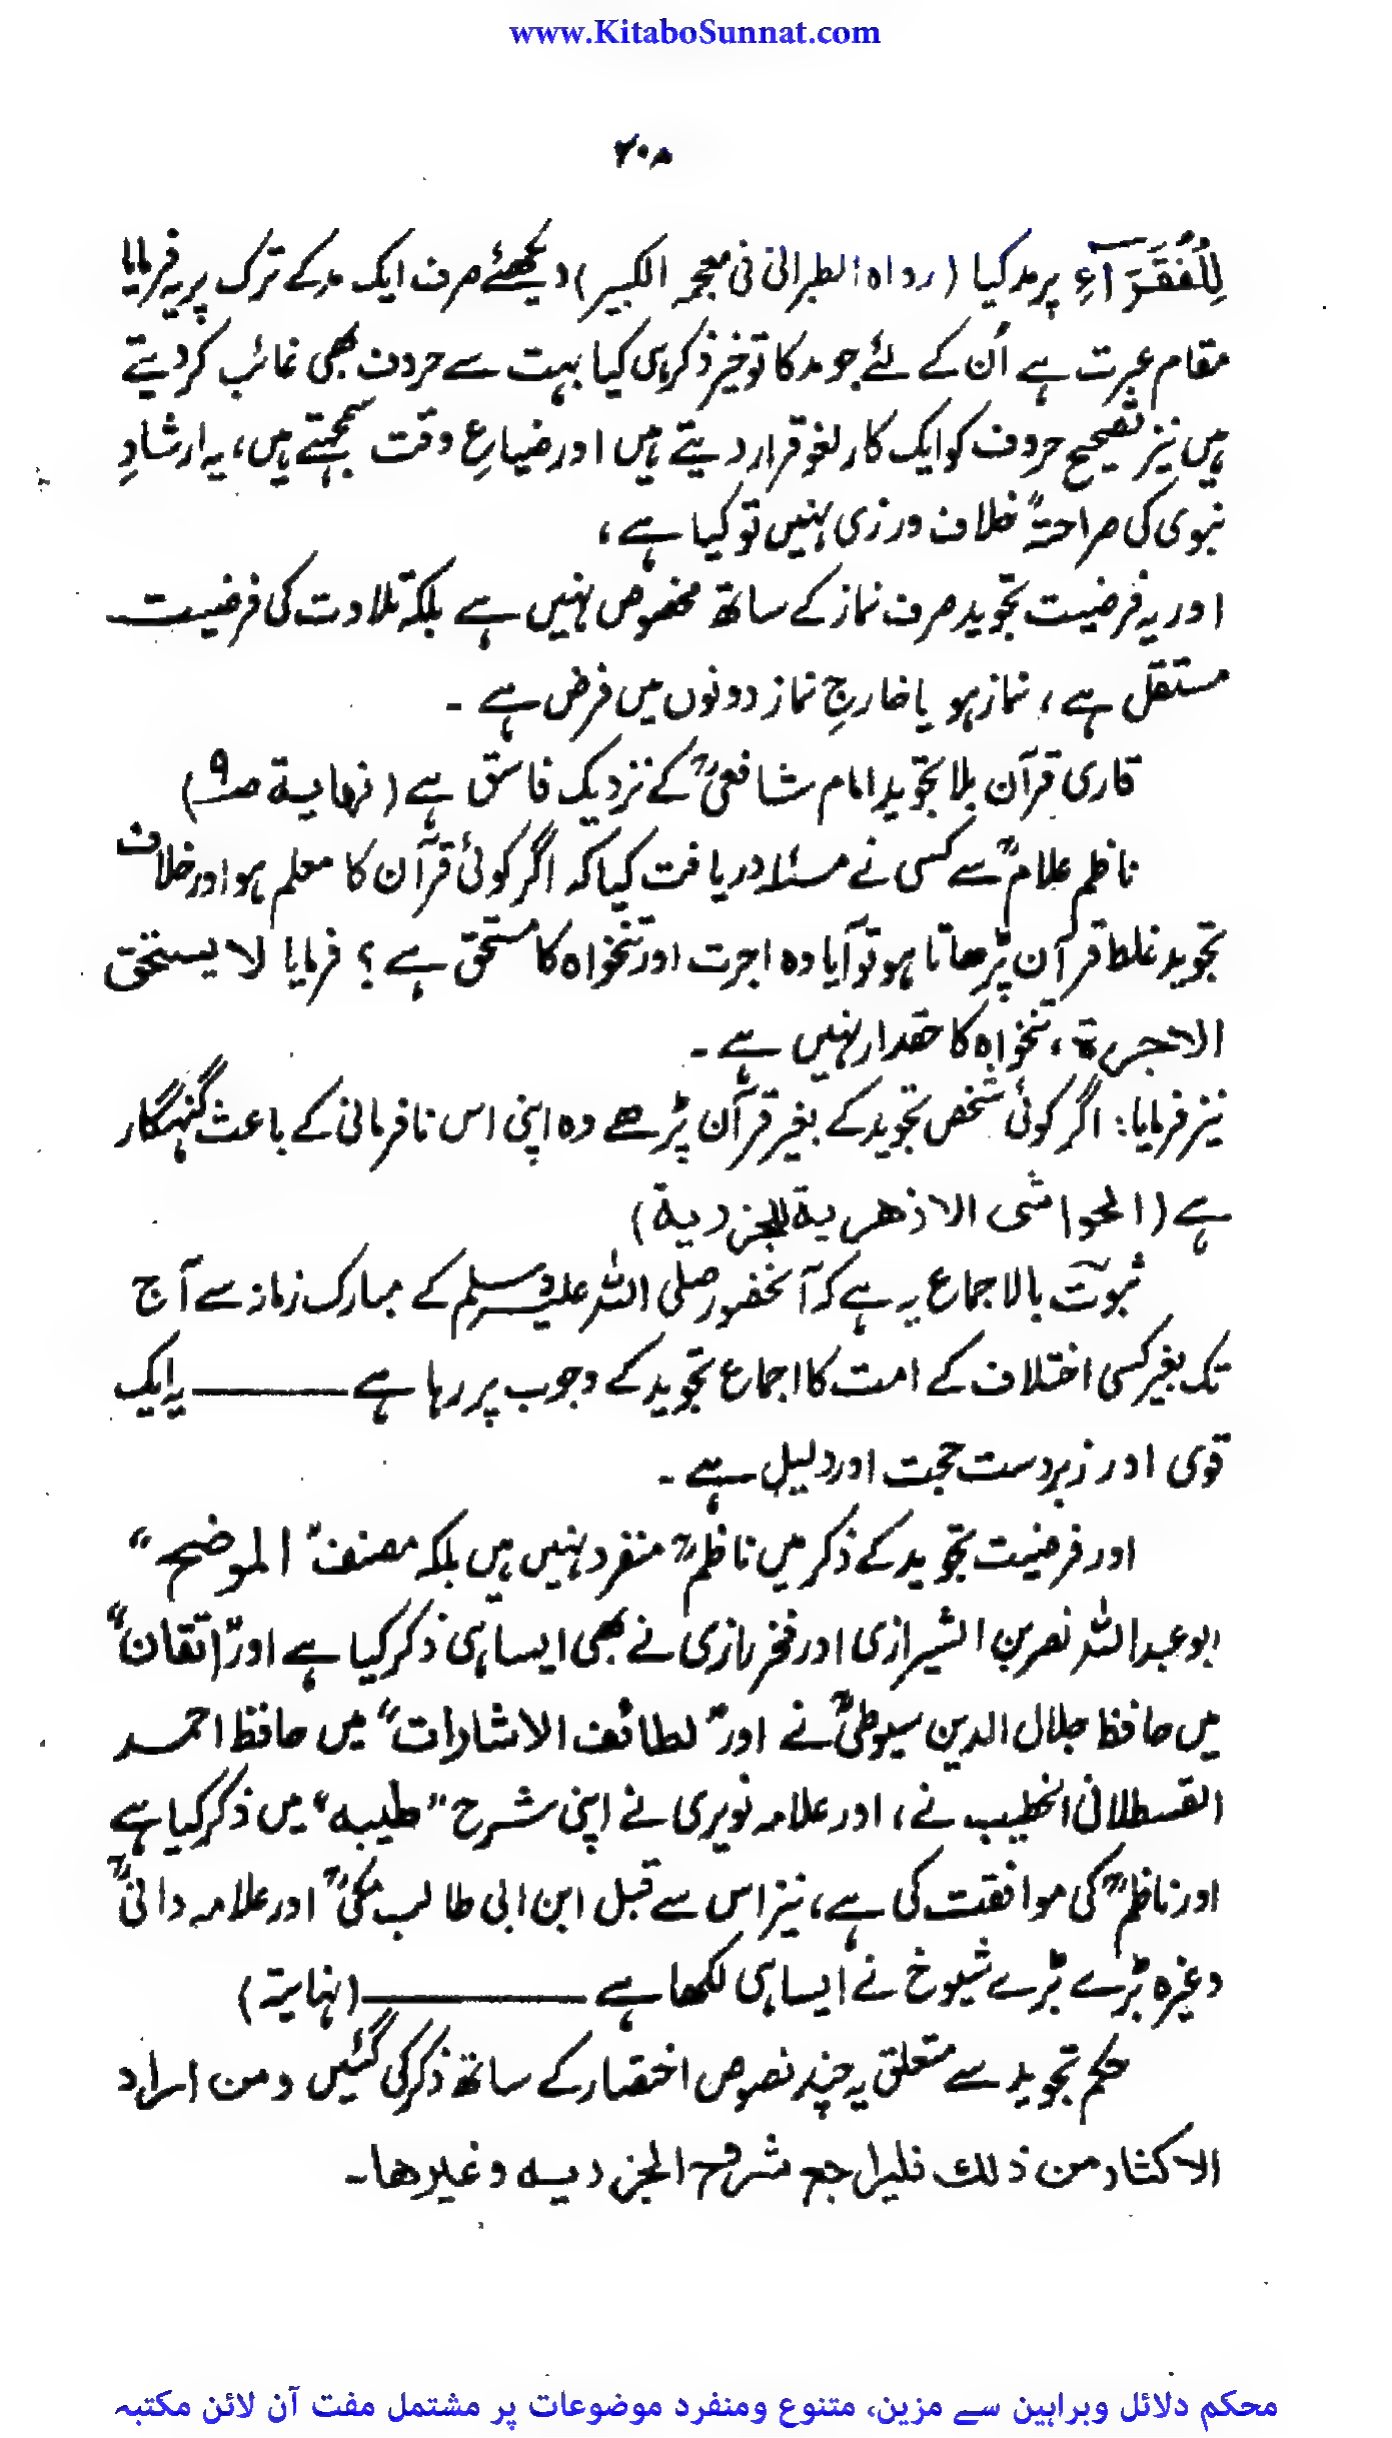 www.KitaboSunnat.com
۲۰۸
لِلْفُقَرَآءِ پر مد کیا (رواہ الطبرانی فی معجمہ الکبیر) دیکھئے صرف ایک مد کے ترک پر یہ فرمایا
مقام عبرت ہے اُن کے لئے جو مد کا تو خیر ذکر ہی کیا بہت سے حروف بھی غائب کر دیتے
ہیں نیز تصحیح حروف کو ایک کار لغو قرار دیتے ہیں اور ضیاعِ وقت سمجھتے ہیں، یہ ارشادِ
نبوی کی صراحۃً خلاف ورزی نہیں تو کیا ہے،
اور یہ فرضیت تجوید صرف نماز کے ساتھ مخصوص نہیں ہے بلکہ تلاوت کی فرضیت
مستقل ہے، نماز ہو یا خارجِ نماز دونوں میں فرض ہے ۔
قاری قرآن بلا تجوید امام شافعیؒ کے نزدیک فاسق ہے (نہایۃ صـ۹)
ناظم علامؒ سے کسی نے مسئلہ دریافت کیا کہ اگر کوئی قرآن کا معلم ہو اور خلاف
تجوید غلط قرآن پڑھاتا ہو تو آیا وہ اجرت اور تنخواہ کا مستحق ہے؟ فرمایا لا یستحق
الاجرۃ، تنخواہ کا حقدار نہیں ہے ۔
نیز فرمایا: اگر کوئی شخص تجوید کے بغیر قرآن پڑھے وہ اپنی اس نافرمانی کے باعث گنہگار
ہے (الحواشی الازھریۃ للجزریۃ)
ثبوت بالاجماع یہ ہے کہ آنحضور صلی اللہ علیہ وسلم کے مبارک زمانہ سے آج
تک بغیر کسی اختلاف کے امت کا اجماع تجوید کے وجوب پر رہا ہے ــــــــ یہ ایک
قوی اور زبردست حجت اور دلیل ہے ۔
اور فرضیت تجوید کے ذکر میں ناظمؒ منفرد نہیں ہیں بلکہ مصنف "الموضح"
ابو عبداللہ نصر بن الشیرازی اور فخر رازی نے بھی ایسا ہی ذکر کیا ہے اور "اتقان"
میں حافظ جلال الدین سیوطیؒ نے اور "لطائف الاشارات" میں حافظ احمد
القسطلانی الخطیب نے، اور علامہ نویری نے اپنی شرح "طیبہ" میں ذکر کیا ہے
اور ناظمؒ کی موافقت کی ہے، نیز اس سے قبل ابن ابی طالب مکیؒ اور علامہ دانیؒ
وغیرہ بڑے بڑے شیوخ نے ایسا ہی لکھا ہے ــــــــــــ (نہایۃ)
حکم تجوید سے متعلق یہ چند نصوص اختصار کے ساتھ ذکر کی گئیں ومن اراد
الاکثار من ذلک فلیراجع شروح الجزریہ وغیرھا۔
محکم دلائل وبراہین سے مزین، متنوع ومنفرد موضوعات پر مشتمل مفت آن لائن مکتبہ